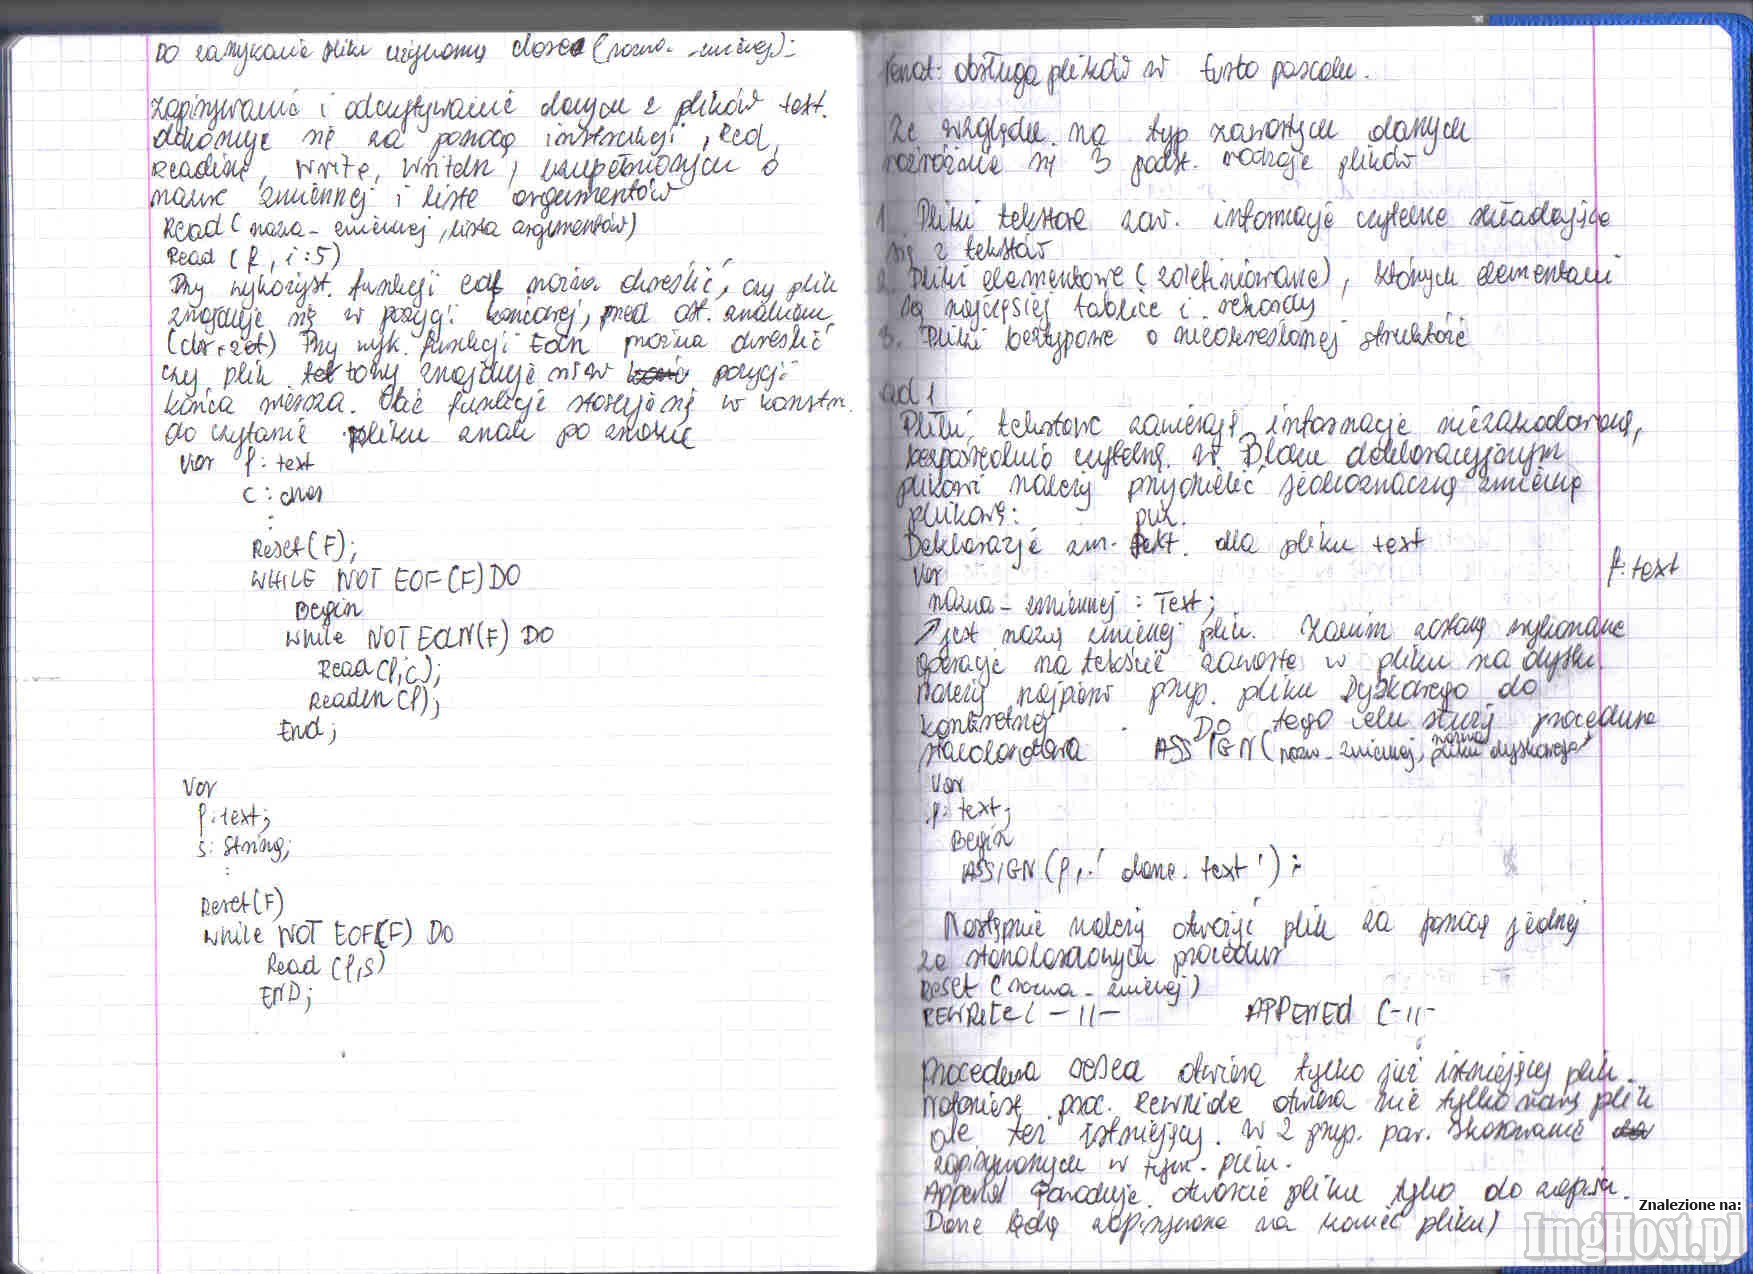 Do zamykanie pliku używamy close (nazwa-zmiennej);
Zapisywanie i odczytywanie danych z plików text.
dokonuje się za pomocą instrukcji, Read,
Readline, write, writeln, uzupełnionych o
nazwe zmiennej i liste argumentów
Read (nazwa-zmiennej, lista argumentów)
Read (f, i:5)
Przy wykorzyst. funkcji eof można określić, czy plik
znajduje się w pozycji końcowej, przed ost. znakiem
Przy wyk. funkcji Eoln można określić
czy plik tektowy znajduje się w pozycji
końca wiersza. Obie funkcje stosuje się w konstr.
do czytanie pliku znak po znaku
Var f: text
c: char
:
Reset(F);
WHILE NOT EOF(F) DO
Begin
While NOT EOLN(F) DO
Read(f,c);
Readln(f);
End;
Var
f: text;
s: String;
:
Reset(F)
While NOT EOF(F) DO
Read (f,s)
END;
Temat: obsługa plików w turbo pascalu.
Ze względu na typ zawartych danych
rozróżnia się 3 podst. rodzaje plików
1. Pliki tekstowe zaw. informacje czytelne składające
się z tekstów
2. Pliki elementowe (zdefiniowane), których elementami
są najczęsiej tablice i rekordy
3. Pliki beztypowe o nieokreślonej strukturze
ad 1
Pliki tekstowe zawierają informacje niezakodowaną,
bezpośrednio czytelną. W Bloku deklaracyjnym
plikowi należy przydzielić jednoznaczną zmienną
plikową:
Deklaracje zm. dla pliku text
f: text
Var
nazwa-zmiennej : Text;
↗ jest nazwą zmienej plik. Zanim zostaną wykonane
operacje na tekście zawarte w pliku na dysku
należy najpierw przyp. pliku Dyskowego do
konkretnej . Do tego celu służy procedura
standardowa ASSIGN (nazwa-zmiennej, nazwa pliku dyskowego)
Var
f: text;
Begin
ASSIGN (f, 'dane.text');
Następnie należy otworzyć plik za pomocą jednej
ze standardowych procedur
Reset (nazwa-zmienej)
REWRitE ( -||- APPENED (-||-
Procedura otwiera tylko już istniejący plik.
Natomiast proc. Rewride otwiera nie tylko nowy plik
ale też istniejący. W 2 przyp. pow. skasowanie
zapisywanych w tym. pliku.
Append Powoduje otwarcie pliku tylko do zapisu.
Dane będą zapisywane na koniec pliku)
Znalezione na:
ImgHost.pl